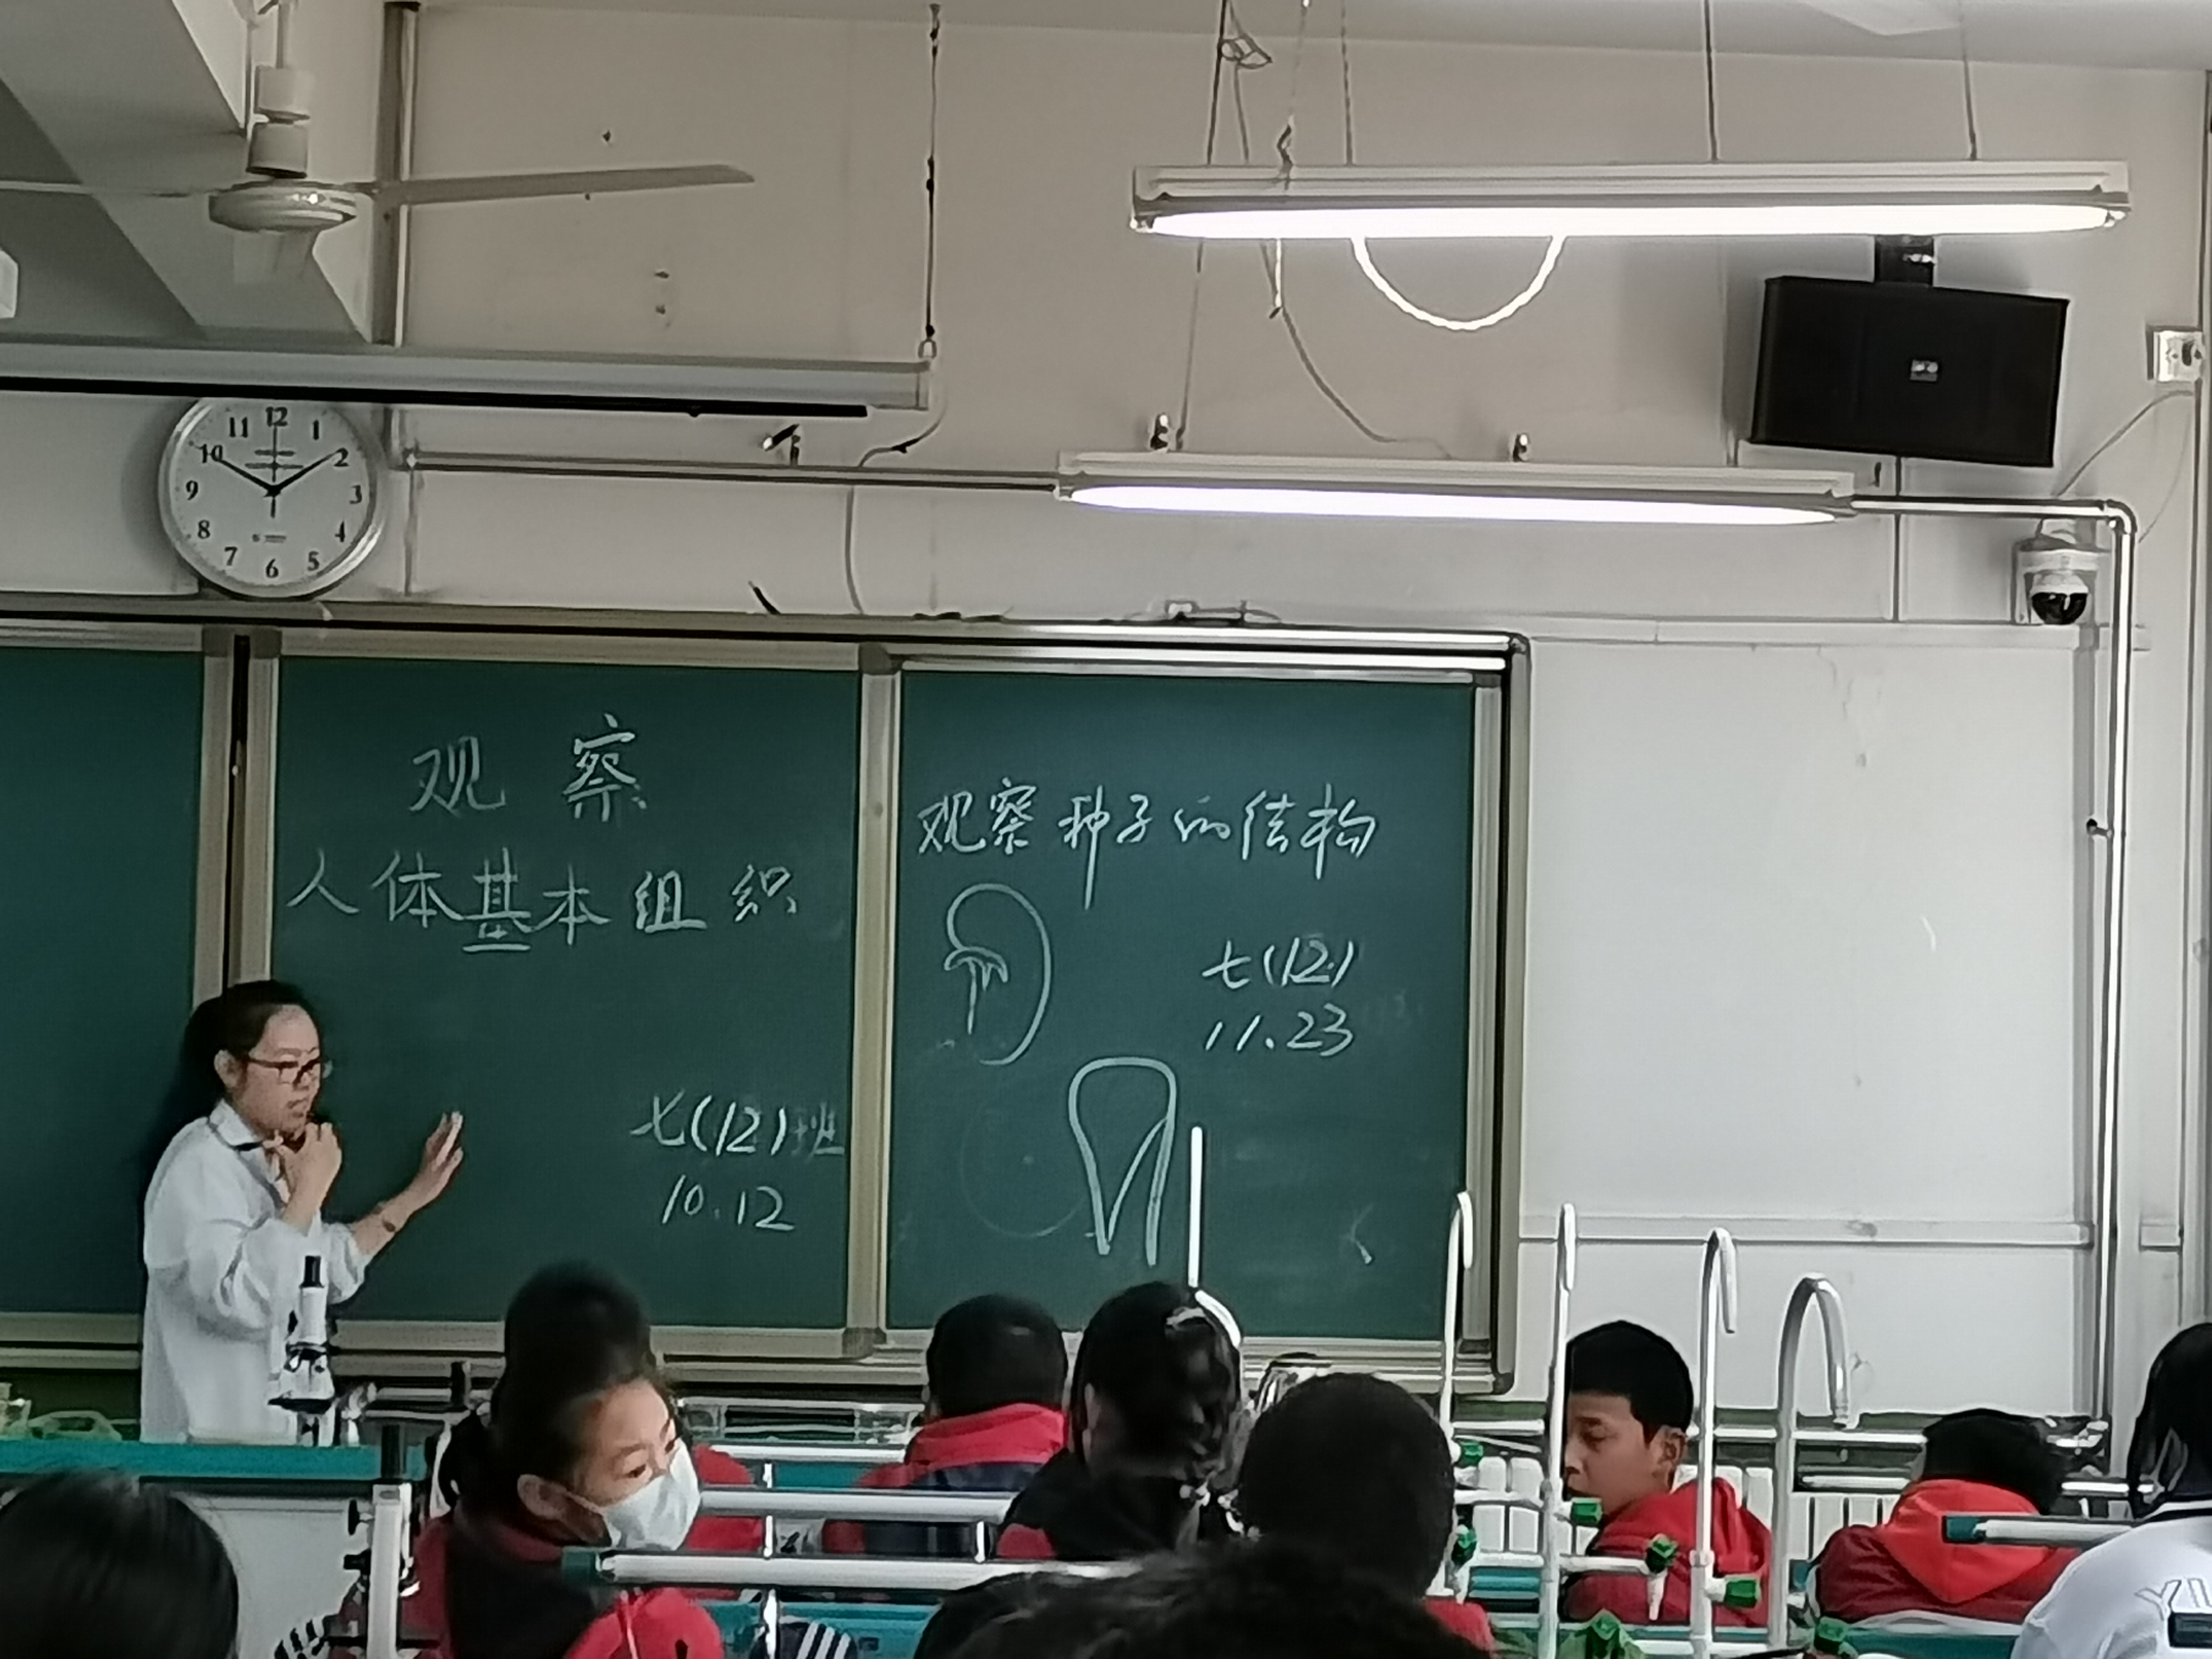 12
1
2
3
4
5
6
7
8
9
10
11
观察
人体基本组织
七(12)班
10.12
观察种子的结构
七(12)
11.23